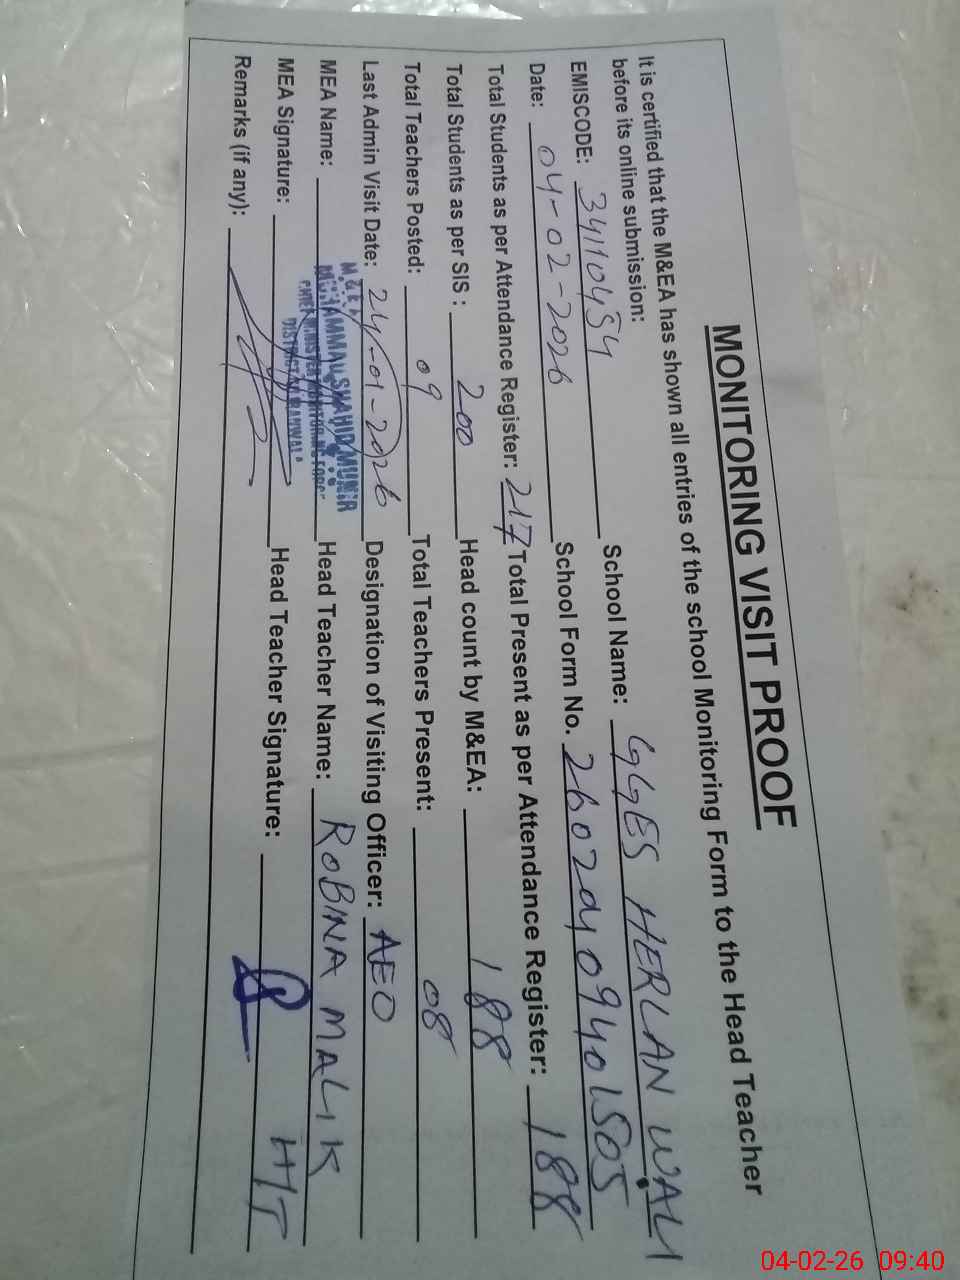 MONITORING VISIT PROOF
It is certified that the M&EA has shown all entries of the school Monitoring Form to the Head Teacher
before its online submission:
EMISCODE: 34110454 School Name: GGES HERLAN WALI
Date: 04-02-2026 School Form No. 26020409401505
Total Students as per Attendance Register: 217 Total Present as per Attendance Register: 188
Total Students as per SIS : 200 Head count by M&EA: 188
Total Teachers Posted: 09 Total Teachers Present: 08
Last Admin Visit Date: 24-01-2026 Designation of Visiting Officer: AEO
MEA Name: M.&E.A MUHAMMAD SHAHID MUNIR Head Teacher Name: ROBINA MALIK
CHIEF MINISTER MONITORING FORCE
DISTRICT
MEA Signature: Head Teacher Signature: HT
Remarks (if any):
04-02-26 09:40